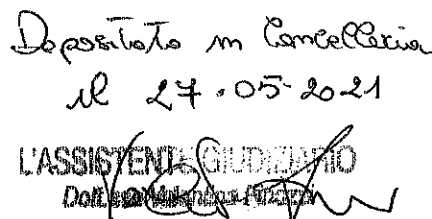 Depositato in Cancelleria
il 27.05-2021
L'ASSISTENTE GIUDIZIARIO